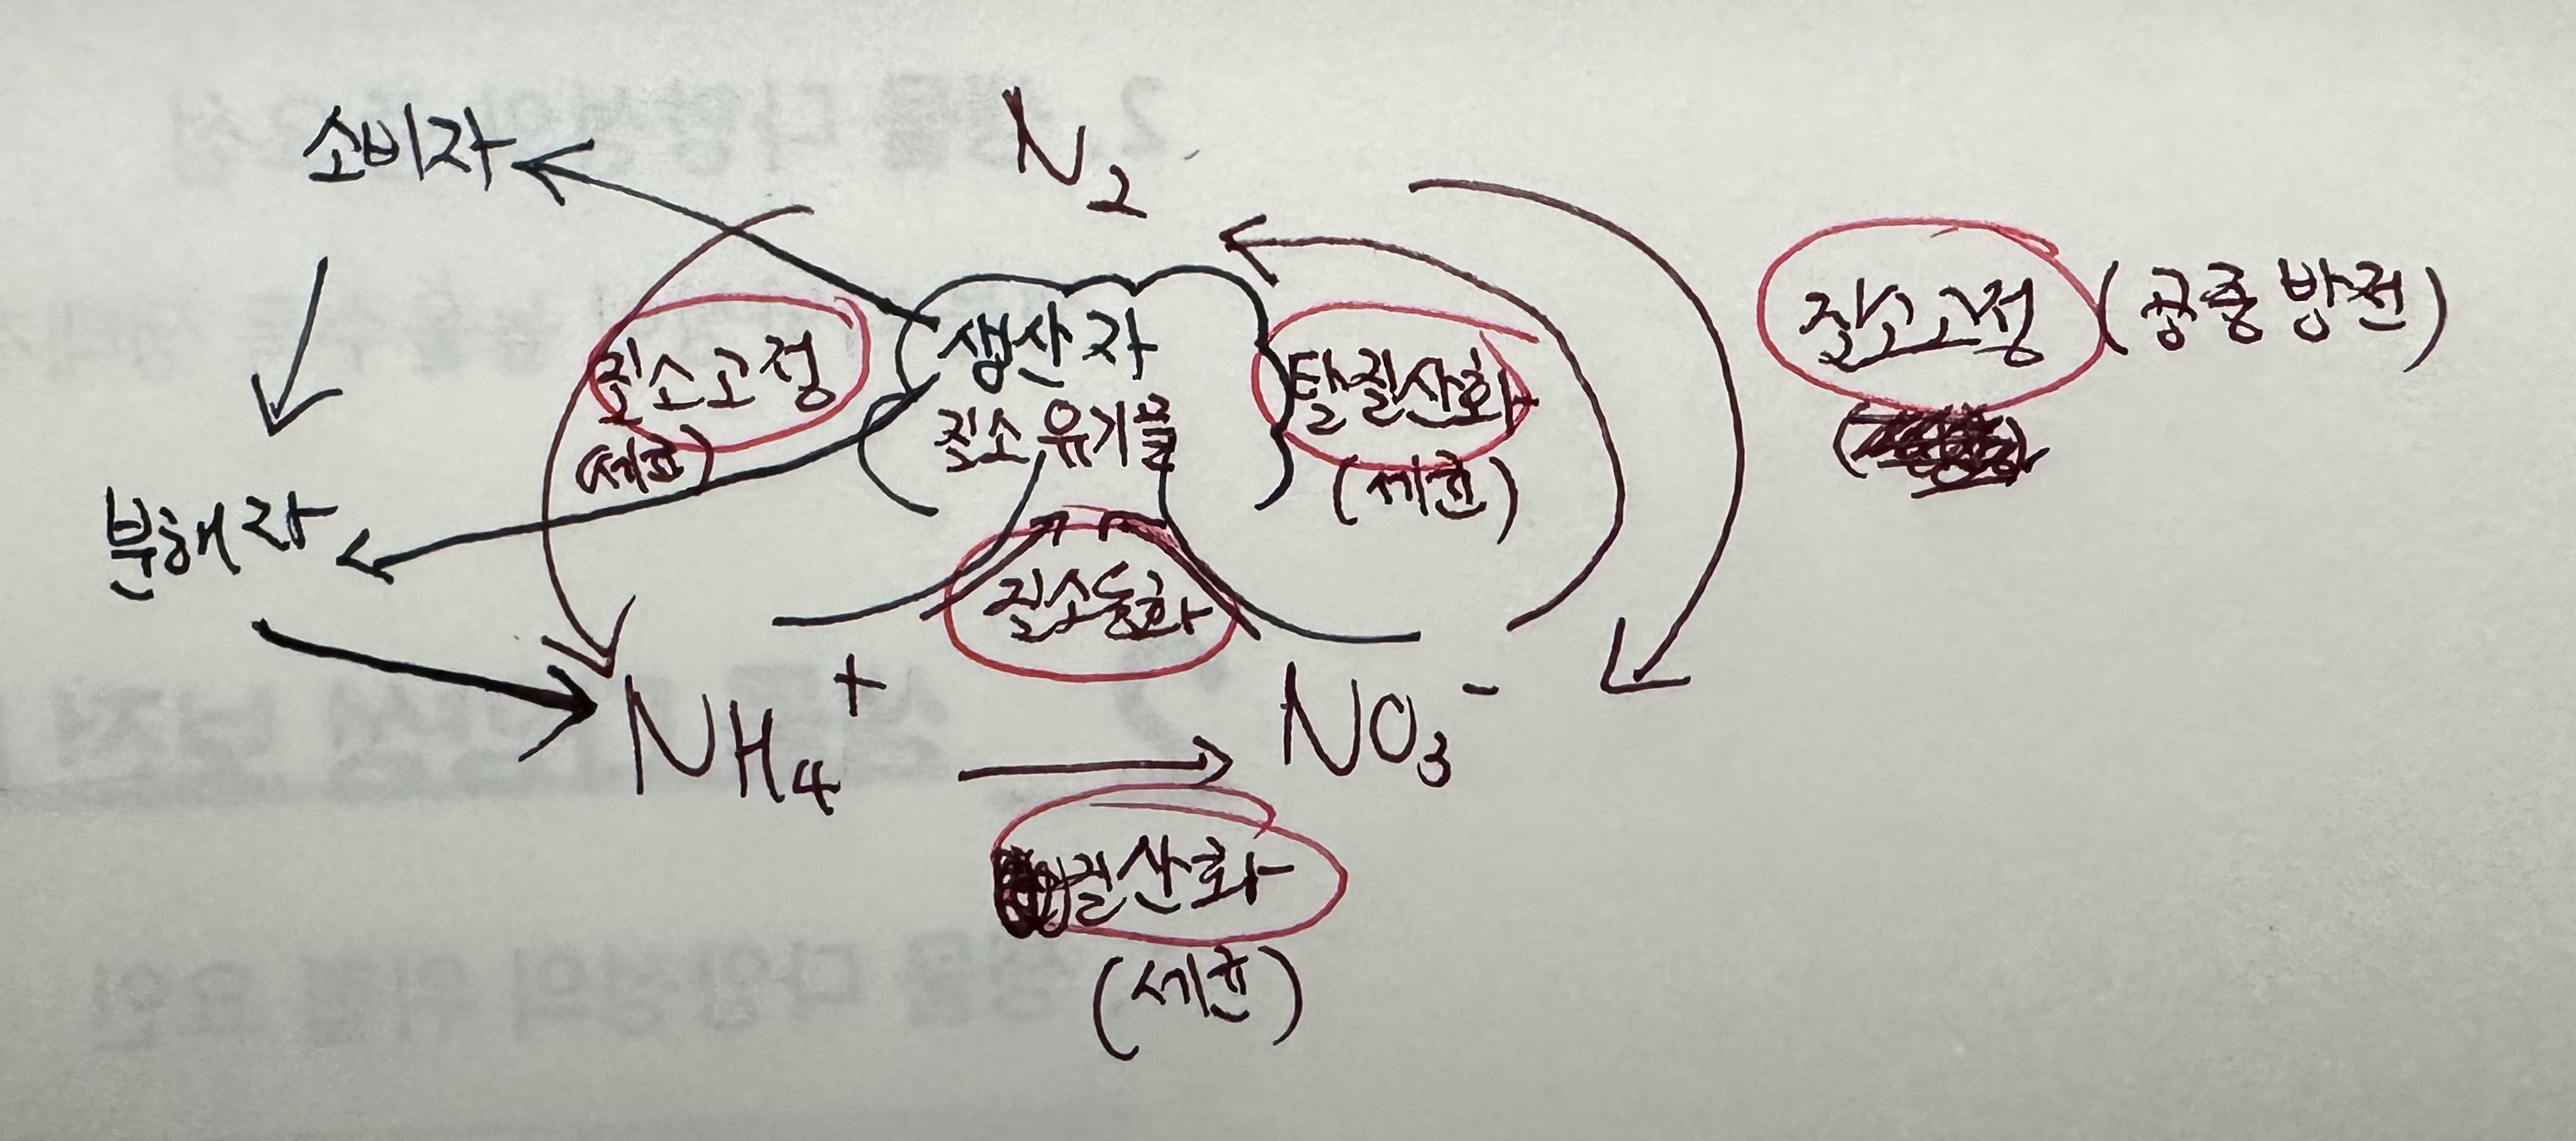 소비자
N₂
질소고정 (공중방전)
생산자
질소유기물
질소고정
(세균)
탈질산화
(세균)
분해자
질소동화
NH₄⁺
NO₃⁻
질산화
(세균)